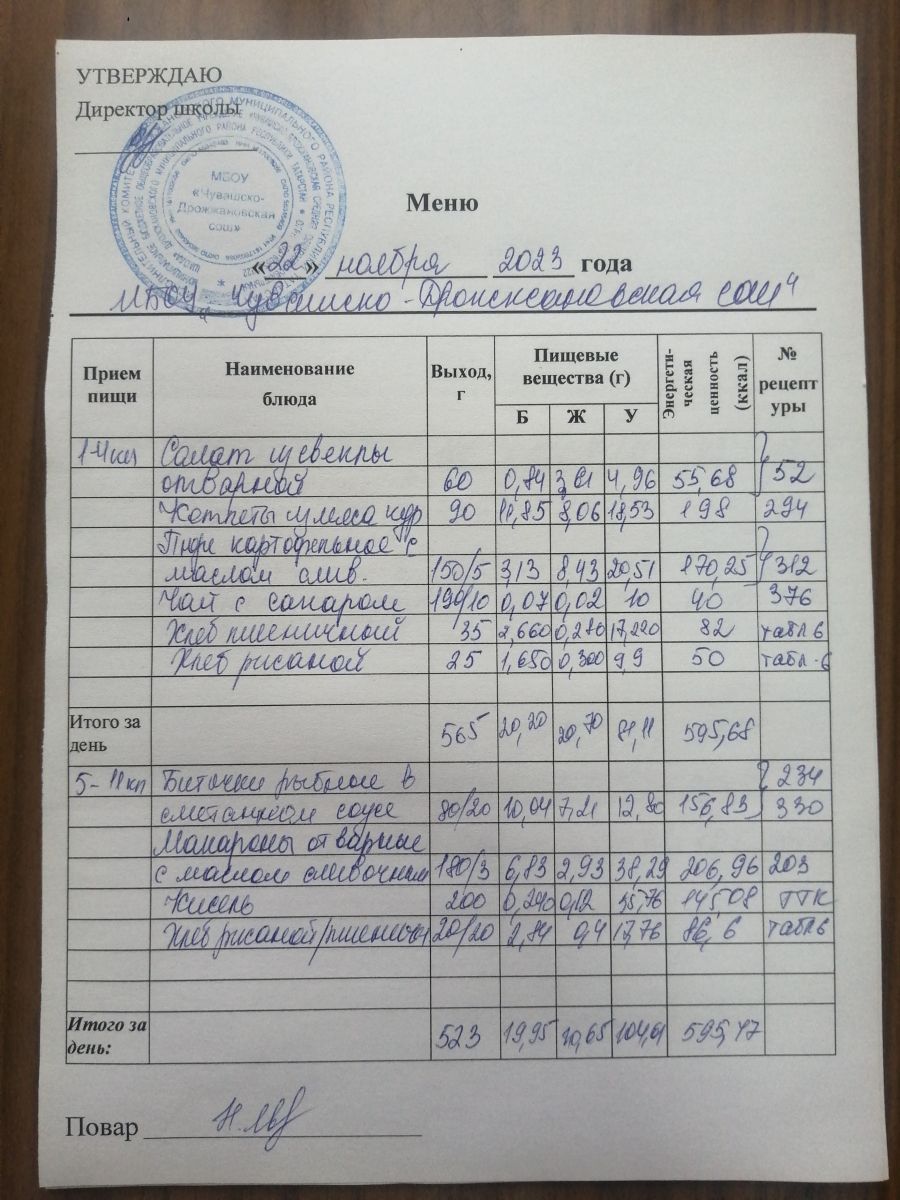 УТВЕРЖДАЮ
Директор школы
МБОУ
«Чувашско-
Дрожжановская
сош»
Меню
«22» ноября 2023 года
МБОУ „Чувашско-Дрожжановская сош“
Прием пищи Наименование блюда Выход, г Пищевые вещества (г) Энергети-ческая ценность (ккал) № рецептуры
Б Ж У
1-4 кл Салат из свеклы
отварной 60 0,84 3,61 4,96 55,68 52
Котлеты из мяса кур 90 11,85 8,06 18,53 198 294
Пюре картофельное с
маслом слив. 150/5 3,13 8,43 20,51 170,25 312
Чай с сахаром 190/10 0,07 0,02 10 40 376
Хлеб пшеничный 35 2,660 0,280 17,220 82 табл 6
Хлеб ржаной 25 1,650 0,300 9,9 50 табл-6
Итого за день 565 20,20 20,70 81,11 595,68
5-11 кл Биточки рыбные в 234
сметанном соусе 80/20 10,04 7,21 12,80 156,83 330
Макароны отварные
с маслом сливочным 180/3 6,83 2,93 38,29 206,96 203
Кисель 200 0,240 0,12 35,76 145,08 ТТК
Хлеб ржаной/пшеничн 20/20 2,84 0,4 17,76 86,6 табл6
Итого за день: 523 19,95 10,65 104,61 595,47
Повар